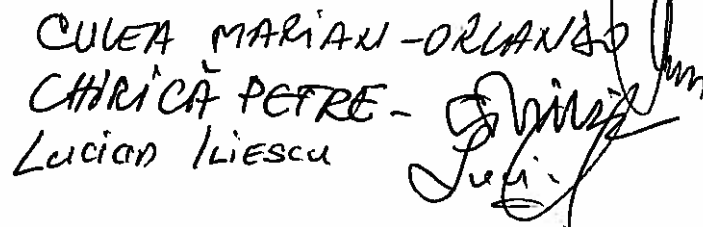 CULEA MARIAN-ORLANDO
CHIRICĂ PETRE-
Lucian Iliescu